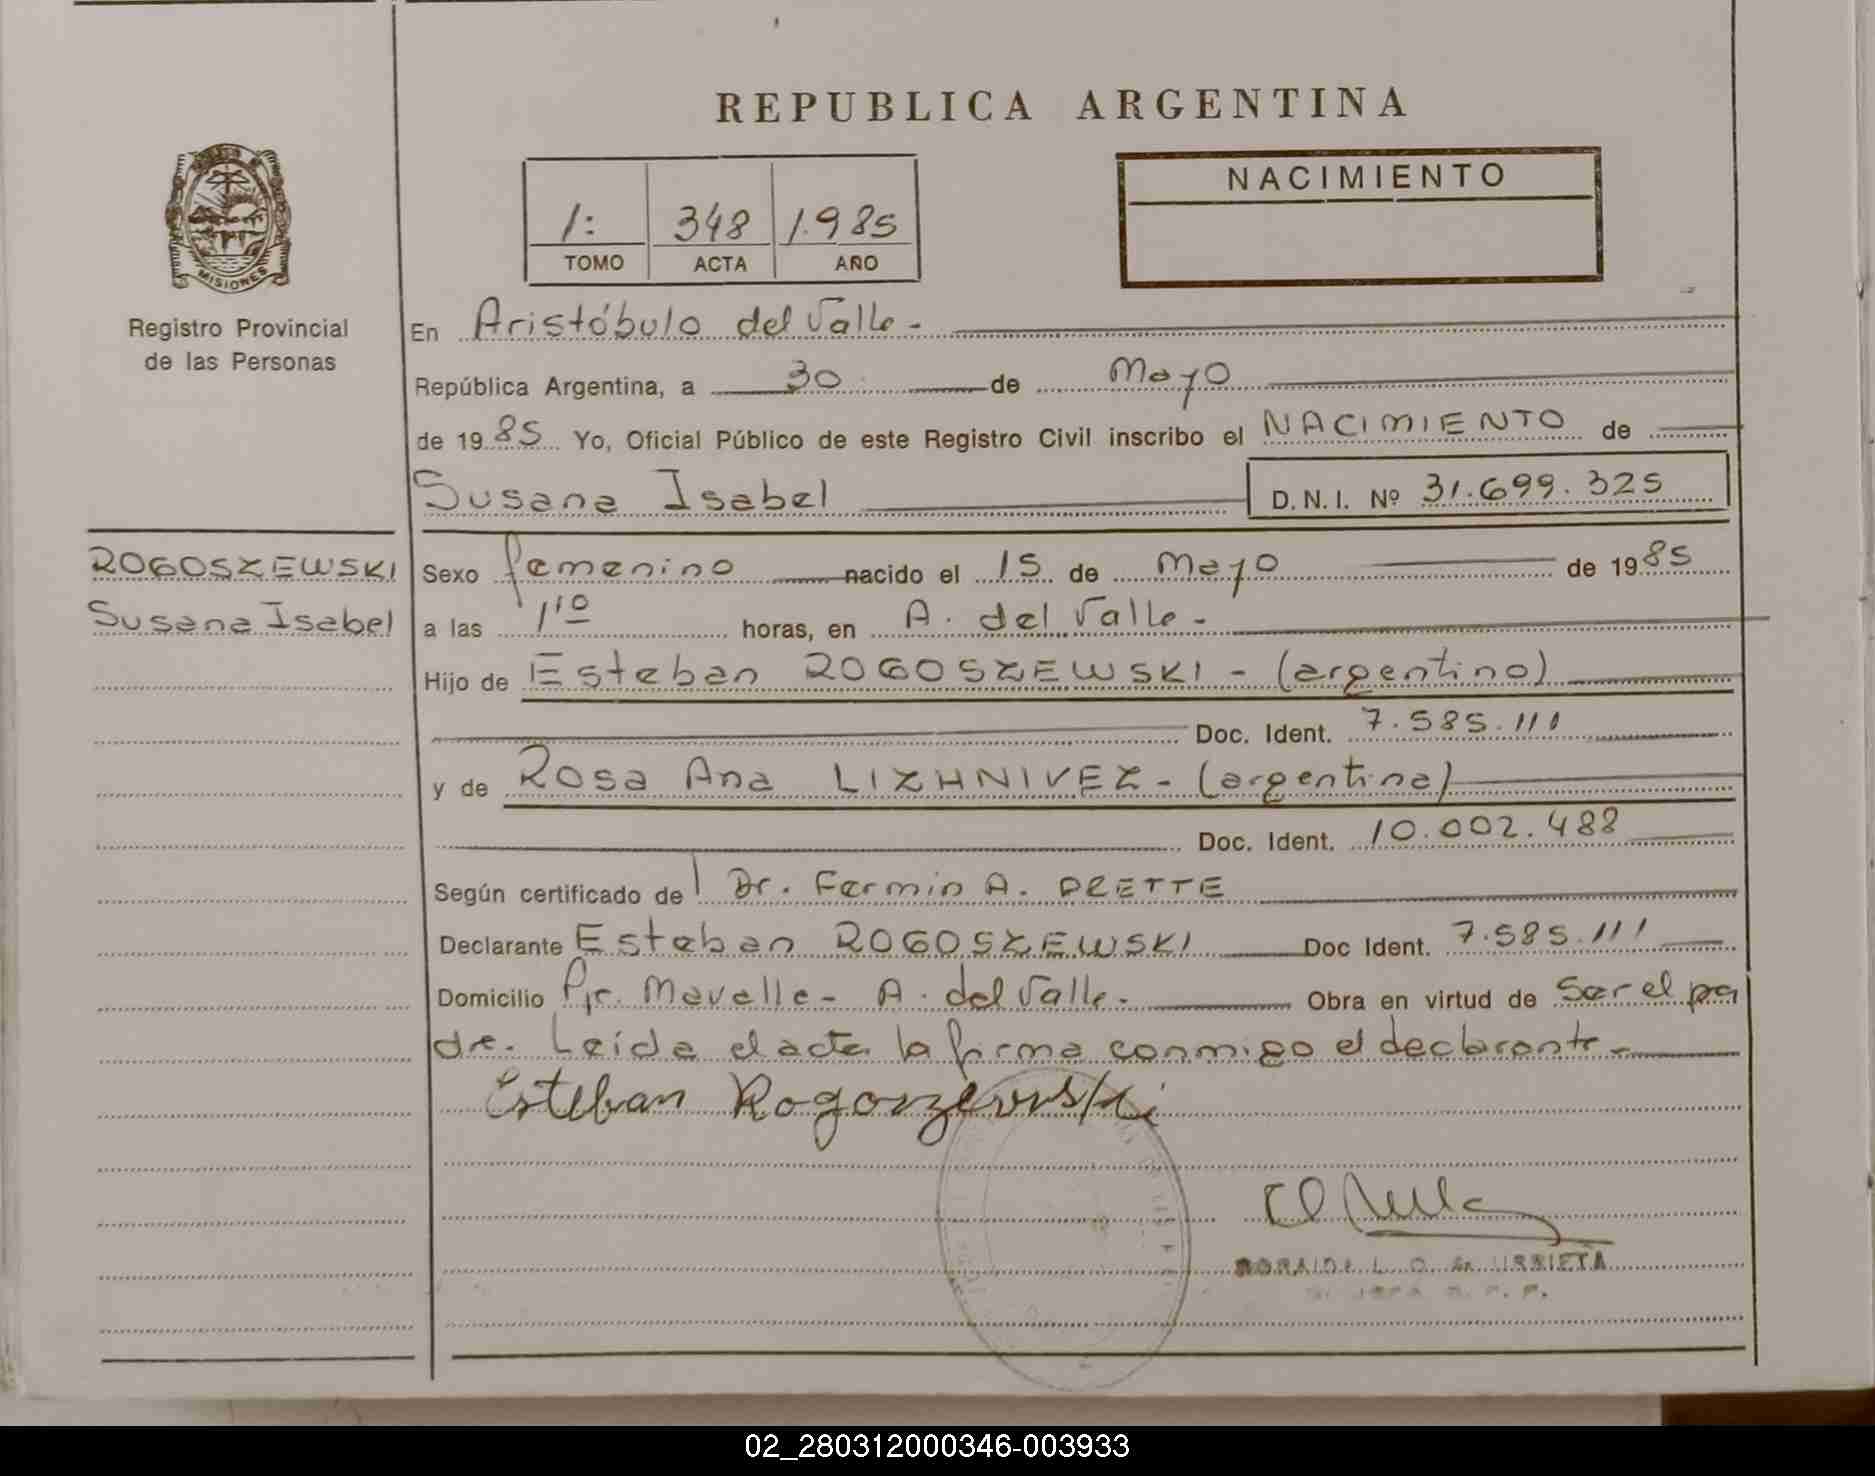 REPUBLICA ARGENTINA
NACIMIENTO
1: 348 1.985
TOMO ACTA AÑO
MISIONES
Registro Provincial
de las Personas
En Aristóbulo del Valle -
República Argentina, a 30 de Mayo
de 19 85 Yo, Oficial Público de este Registro Civil inscribo el NACIMIENTO de
Susana Isabel D.N.I. Nº 31.699.325
ROGOSZEWSKI
Susana Isabel
Sexo femenino nacido el 15 de Mayo de 19 85
a las 1¹⁰ horas, en A. del Valle -
Hijo de Esteban ROGOSZEWSKI - (argentino)
Doc. Ident. 7.585.111
y de Rosa Ana LIZHNIVEZ - (argentina)
Doc. Ident. 10.002.488
Según certificado de Dr. Fermin A. PRETTE
Declarante Esteban ROGOSZEWSKI Doc Ident. 7.585.111
Domicilio Pje. Mavalle - A. del Valle - Obra en virtud de Ser el pa
dre. Leída el acta la firma conmigo el declarante -
Esteban Rogoszewski
L. O. de URRIETA
02_280312000346-003933